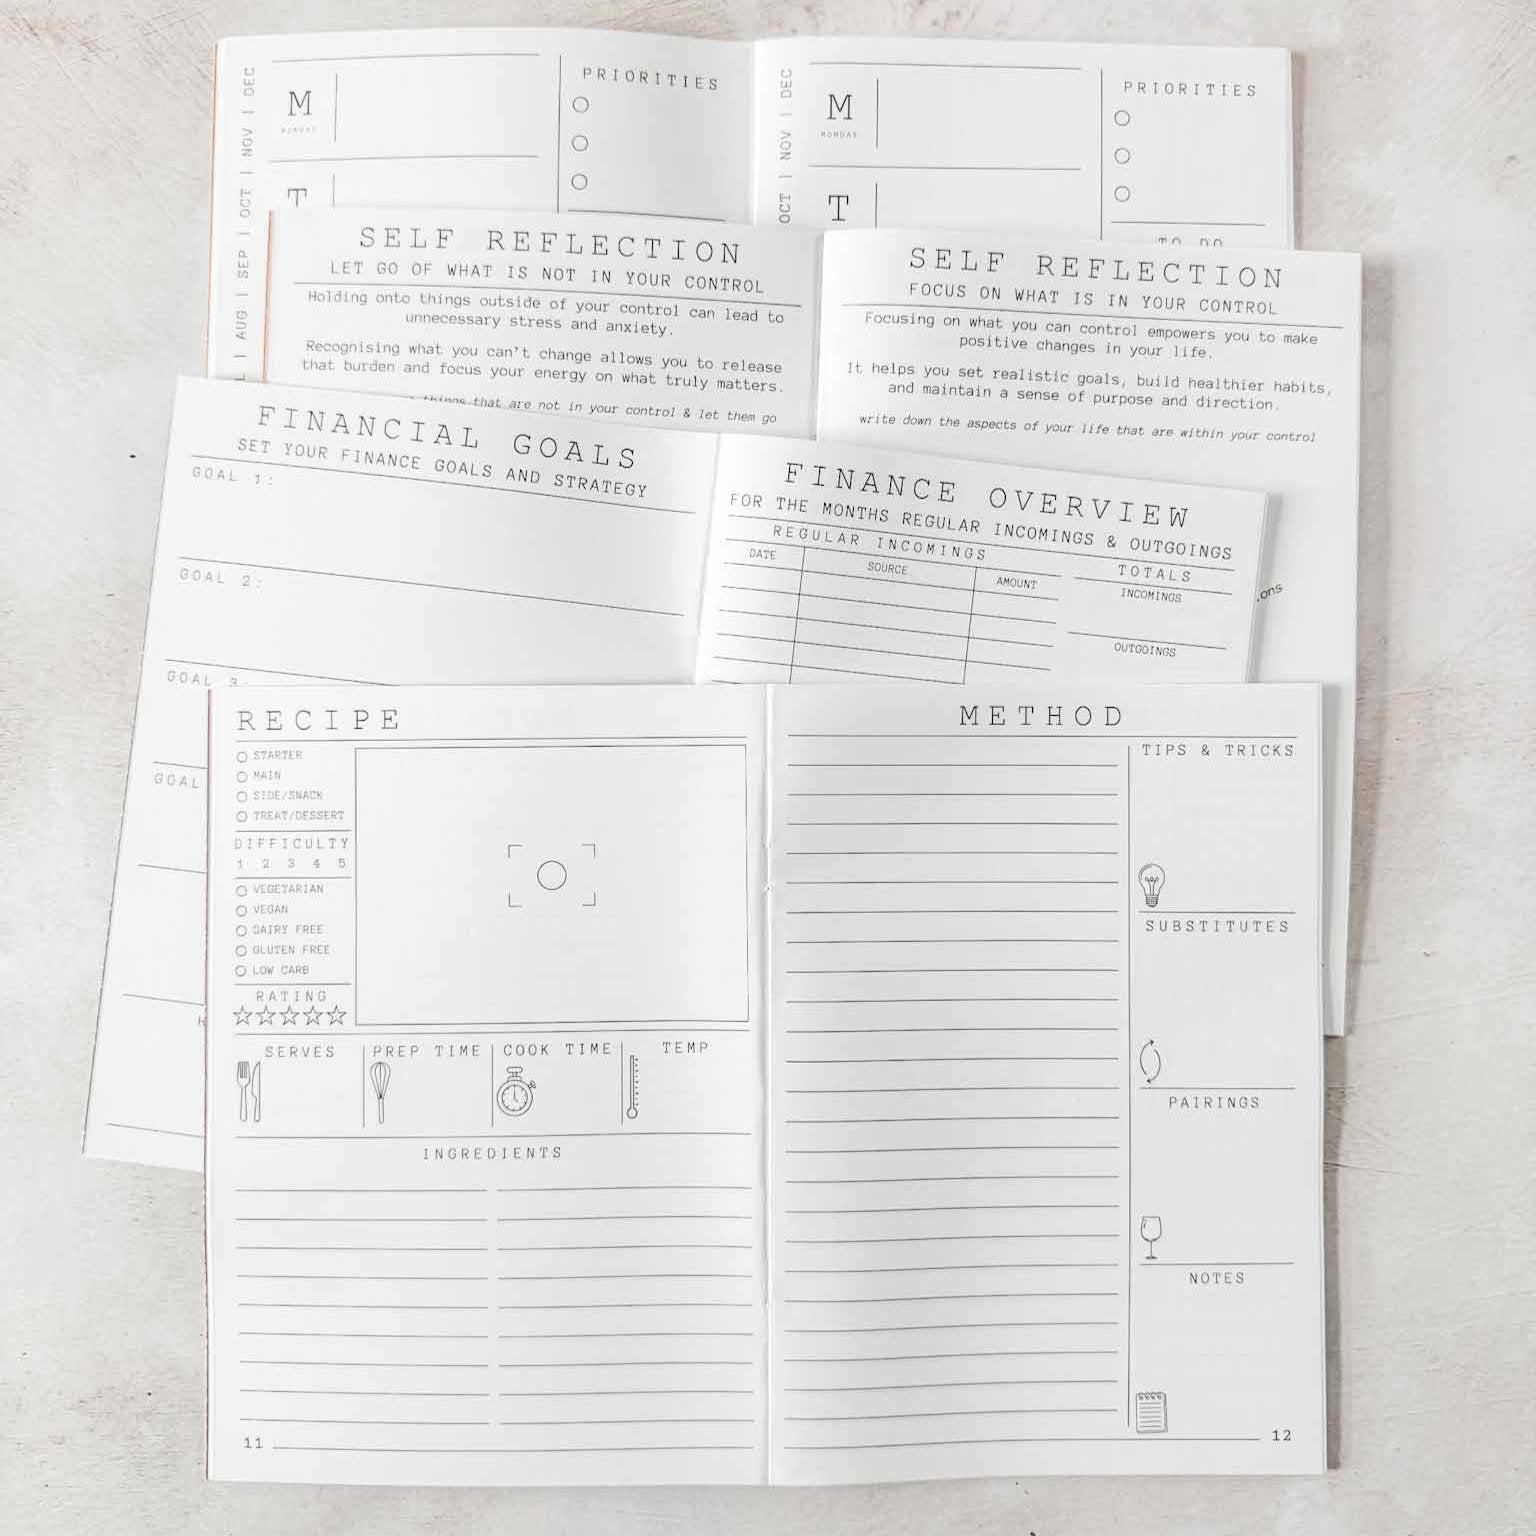 M
MONDAY
T
PRIORITIES
L | AUG | SEP | OCT | NOV | DEC
M
MONDAY
T
PRIORITIES
TO DO
OCT | NOV | DEC
SELF REFLECTION
LET GO OF WHAT IS NOT IN YOUR CONTROL
Holding onto things outside of your control can lead to
unnecessary stress and anxiety.
Recognising what you can't change allows you to release
that burden and focus your energy on what truly matters.
things that are not in your control & let them go
SELF REFLECTION
FOCUS ON WHAT IS IN YOUR CONTROL
Focusing on what you can control empowers you to make
positive changes in your life.
It helps you set realistic goals, build healthier habits,
and maintain a sense of purpose and direction.
write down the aspects of your life that are within your control
FINANCIAL GOALS
SET YOUR FINANCE GOALS AND STRATEGY
GOAL 1:
GOAL 2:
GOAL 3:
GOAL
FINANCE OVERVIEW
FOR THE MONTHS REGULAR INCOMINGS & OUTGOINGS
REGULAR INCOMINGS
DATE SOURCE AMOUNT
TOTALS
INCOMINGS
OUTGOINGS
RECIPE
STARTER
MAIN
SIDE/SNACK
TREAT/DESSERT
DIFFICULTY
1 2 3 4 5
VEGETARIAN
VEGAN
DAIRY FREE
GLUTEN FREE
LOW CARB
RATING
SERVES PREP TIME COOK TIME TEMP
INGREDIENTS
11
METHOD
TIPS & TRICKS
SUBSTITUTES
PAIRINGS
NOTES
12